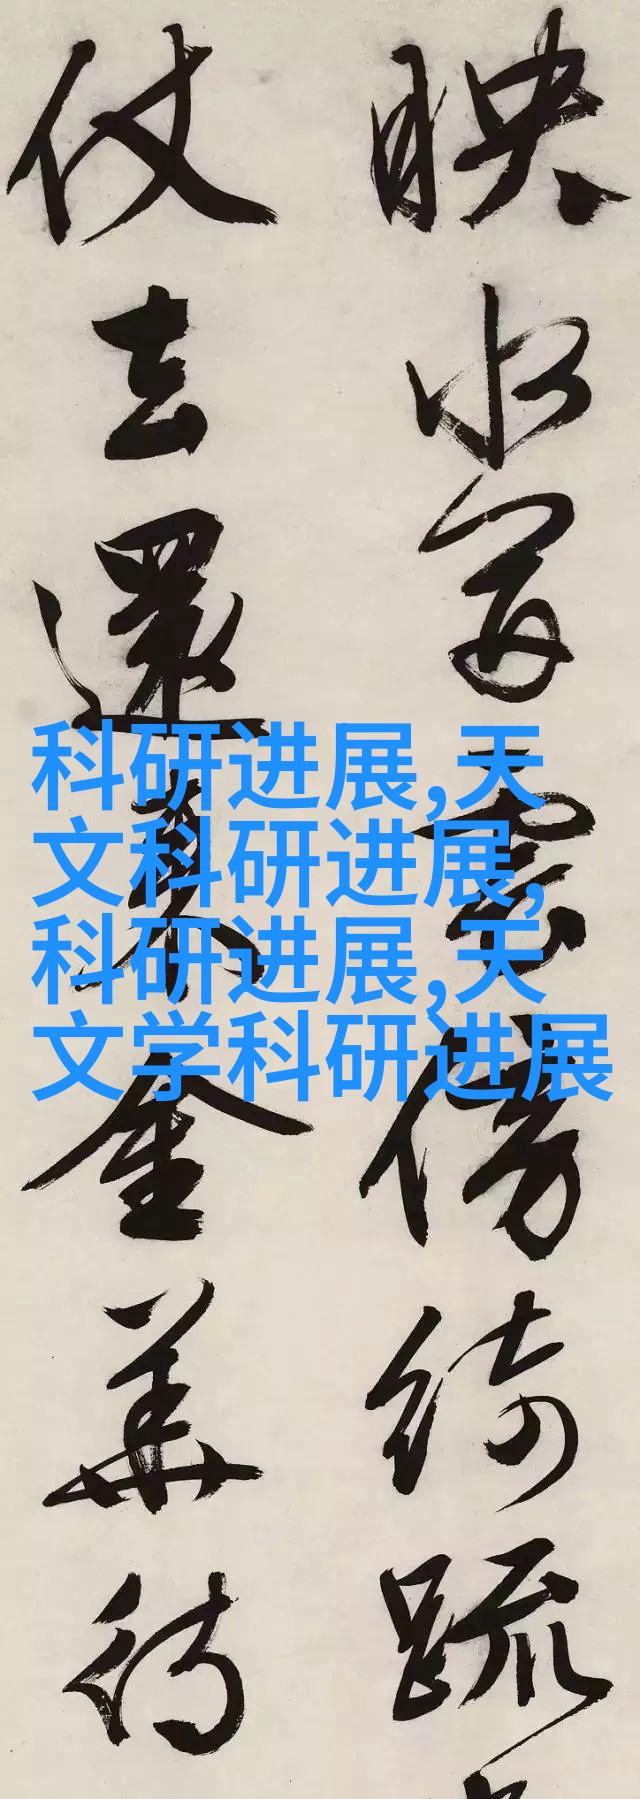 映水写霞傍绮疏
仗去還真金并待
科研进展,天
文科研进展,
科研进展,天
文学科研进展